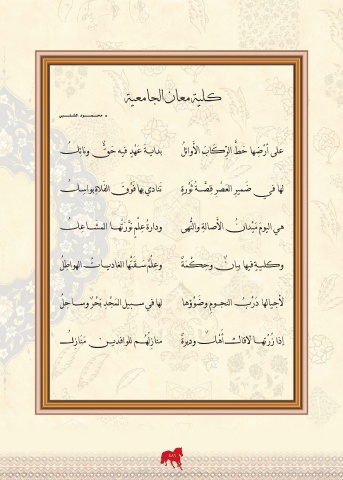 كلية معان الجامعية
د. محمود
على أرضها حطَّ الرِّكابَ الأوائلُ بدايةَ عَهْدٍ فيه حَقٌّ ونائلُ
لها في ضميرِ العَصْرِ قِصَّةُ ثَوْرةٍ تَنادى بها فَوْقَ الفَلاةِ بواسِلُ
هي اليومَ مَيْدانُ الأصالةِ والنُّهى ودارةُ عِلْمٍ نَوَّرَتْها المشاعِلُ
وكليةٌ فيها بيانٌ وحِكْمَةٌ وعِلْمٌ سَقَتْها الغادياتُ الهواطِلُ
لأجيالها دَرْبُ النجومِ وضَوْؤها لها في سبيلِ المَجْدِ بَحْرٌ وساحِلُ
إذا زُرْتها لاقاكَ أهْلٌ وديرةٌ منازِلُهُم للوافدين مَنازِلُ